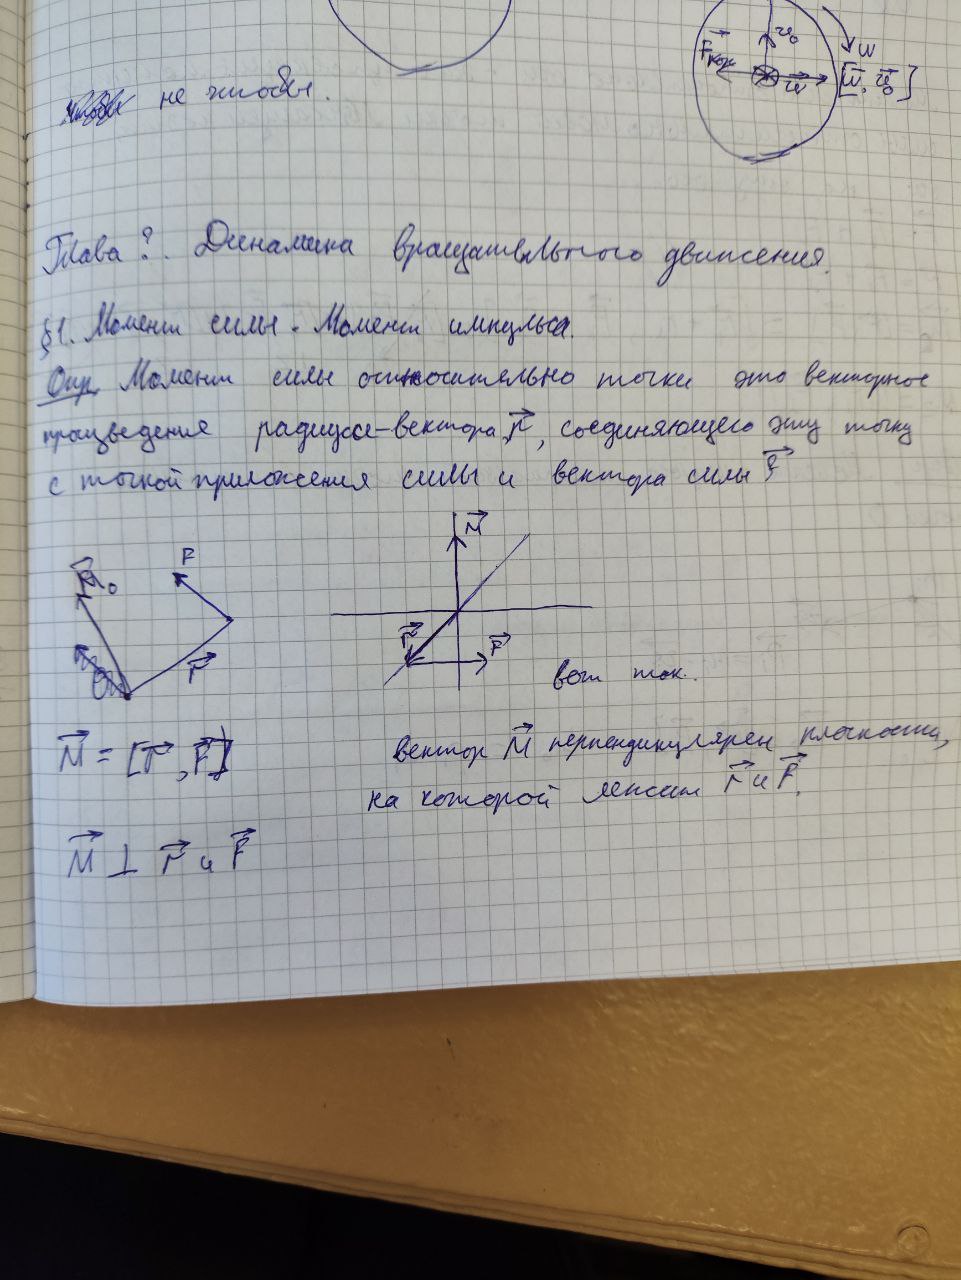 v₀
ω
F⃗кор
[w⃗, v⃗₀]
w⃗
Глава ?. Динамика вращательного движения.
§1. Момент силы. Момент импульса.
Опр. Момент силы относительно точки это векторное
произведение радиуса-вектора r⃗, соединяющего эту точку
с точкой приложения силы и вектора силы F⃗
M⃗
F
r⃗
F⃗
r⃗
вот так.
M⃗ = [r⃗, F⃗]
вектор M⃗ перпендикулярен плоскости,
на которой лежат r⃗ и F⃗.
M⃗ ⊥ r⃗ и F⃗